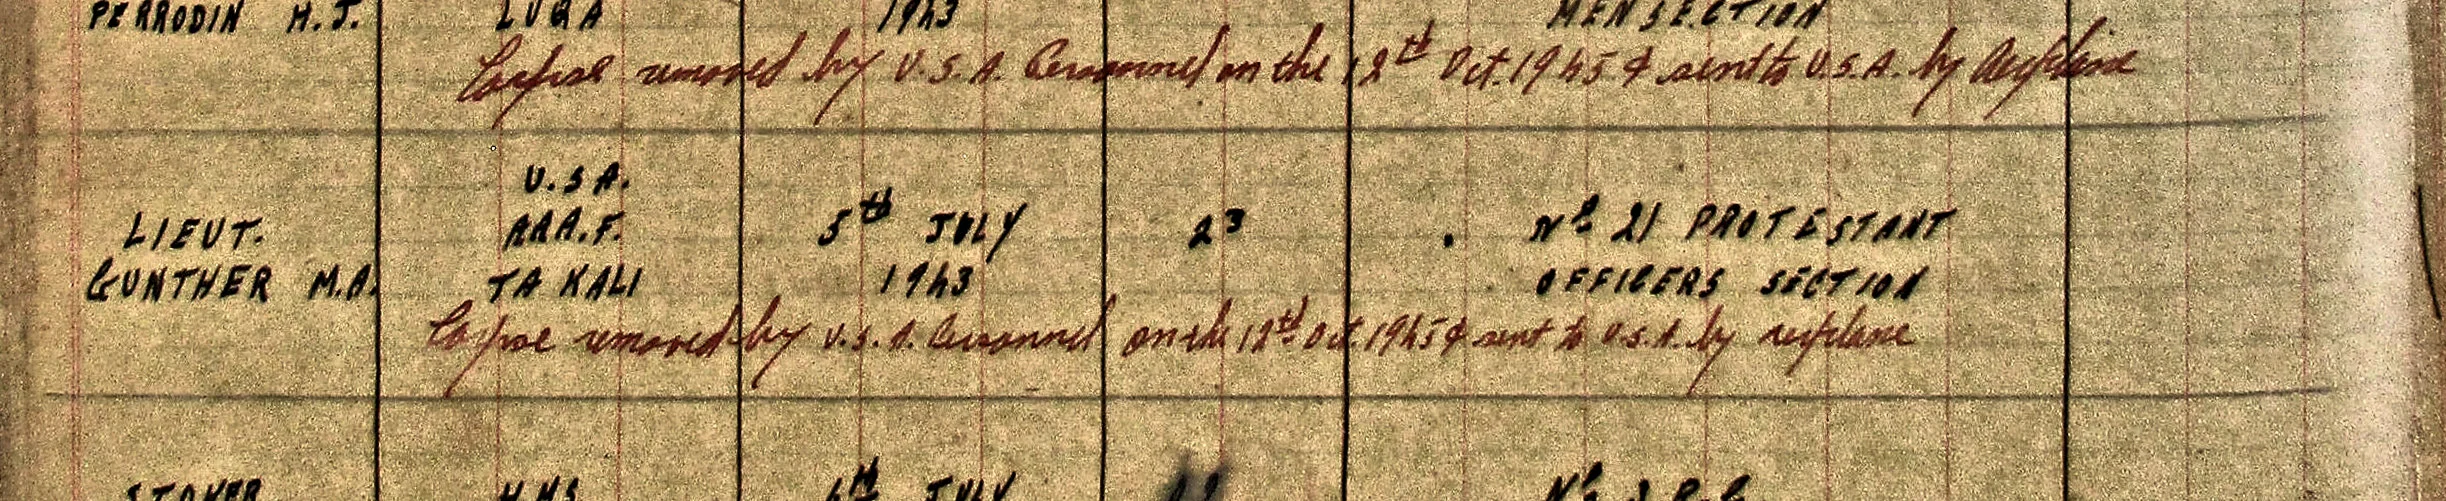 PERRODIN H.J. LUQA 1943 MEN SECTION
Corpse removed by U.S.A. Personnel on the 12th Oct. 1945 & sent to U.S.A. by Aeroplane
U.S.A.
LIEUT. A.A.A.F. 5th JULY 23 Nº 21 PROTESTANT
GUNTHER M.A. TA KALI 1943 OFFICERS SECTION
Corpse removed by U.S.A. Personnel on the 12th Oct. 1945 & sent to U.S.A. by aeroplane
STOKER H.M.S 6th JULY Nº 3 R.C